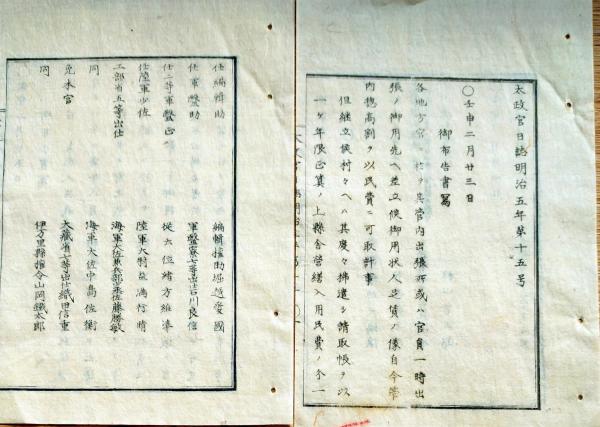 太政官日誌明治五年第十五号
〇壬申二月廿三日
御布告書写
各地方官ニ於テ其管内出張所或ハ官員一時出
張ノ御用先ヘ差立候御用状人足賃ノ儀自今管
内穂高割ヲ以民費ニ可取計事
但継立候村々ヘハ其度々拂遣シ請取帳ヲ以
一ケ年限正算ノ上縣舎営繕入用民費ノ分一
任編輯助
編輯権助堀越愛國
任軍醫助
軍醫寮七等出仕吉川良信
任二等軍醫正
従六位緒方維準
任陸軍少佐
陸軍大尉益満行靖
工部省五等出仕
海軍大佐兼兵部少丞佐藤勝敏
同
海軍大佐中島佐衡
免本官
大藏省七等出仕織田信重
同
伊万里縣権令山岡鐵太郎